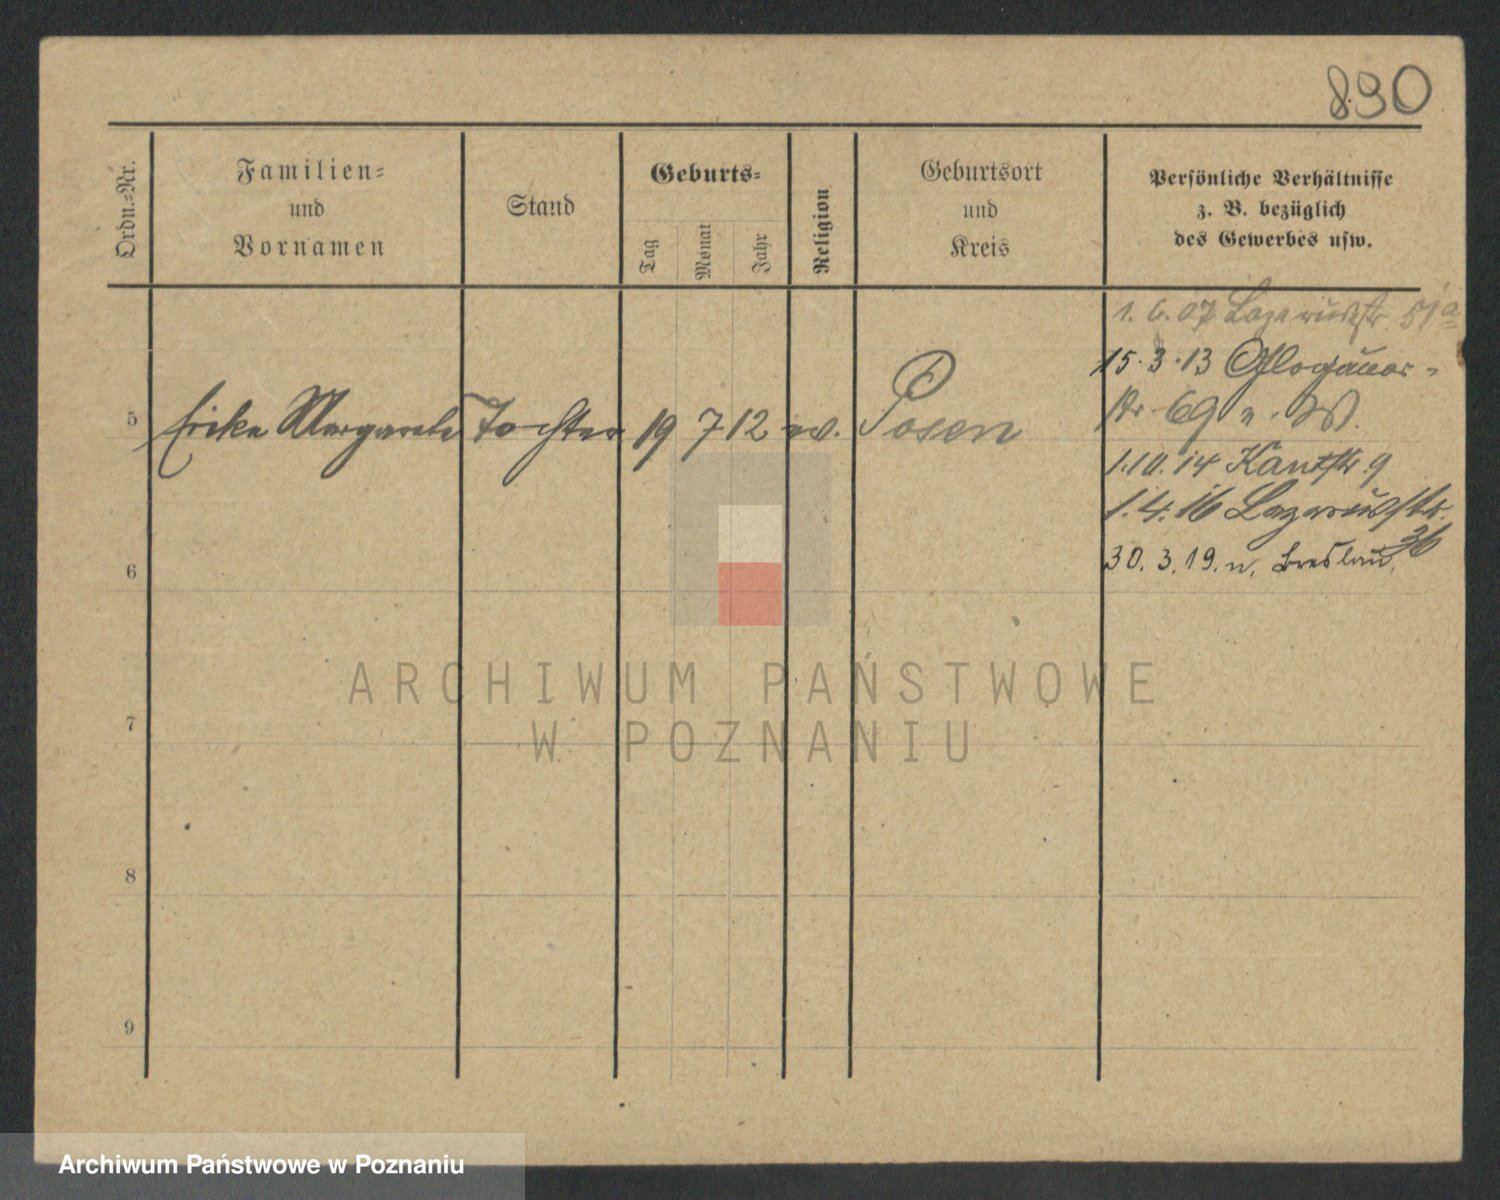 890
Ordn.-Nr.
Familien-
und
Vornamen
Stand
Geburts-
Tag
Monat
Jahr
Religion
Geburtsort
und
Kreis
Persönliche Verhältnisse
z. B. bezüglich
des Gewerbes usw.
1. 6. 07 Lazarusstr. 51a
15. 3. 13 Glogauer-
str. 69
5 Erika Margarete Tochter 19 7 12 ev. Posen
1.10. 14 Kantstr. 9
1. 4. 16 Lazarusstr.
36
30. 3. 19. n. Breslau.
6
7
8
9
ARCHIWUM PAŃSTWOWE
W POZNANIU
Archiwum Państwowe w Poznaniu